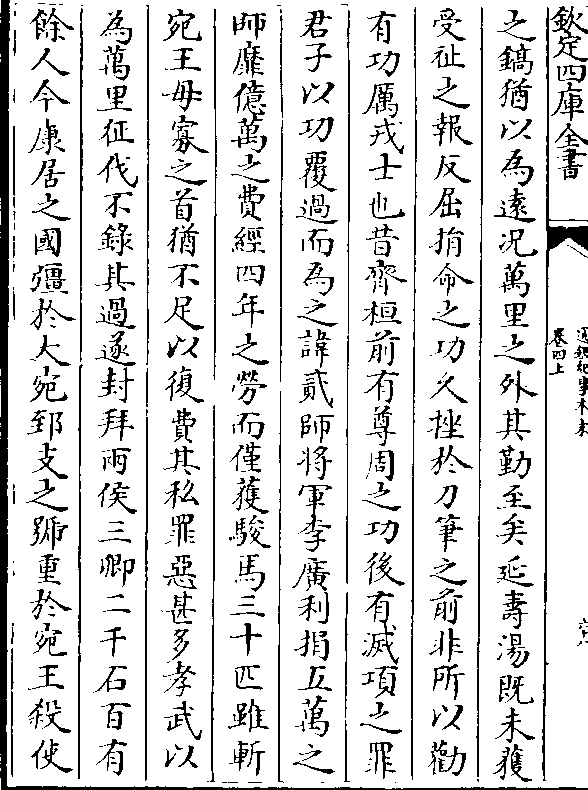 欽定四庫全書
通鑑紀事本末
卷四上
之鎬猶以為逺况萬里之外其勤至矣延壽湯既未獲
受祉之報反屈捐命之功久挫於刀筆之前非所以勸
有功厲戎士也昔齊桓前有尊周之功後有滅項之罪
君子以功覆過而為之諱貳師將軍李廣利捐五萬之
師靡億萬之費經四年之勞而僅獲駿馬三十匹雖斬
宛王母寡之首猶不足以復費其私罪惡甚多孝武以
為萬里征伐不錄其過遂封拜兩侯三卿二千石百有
餘人今康居之國彊於大宛郅支之號重於宛王殺使